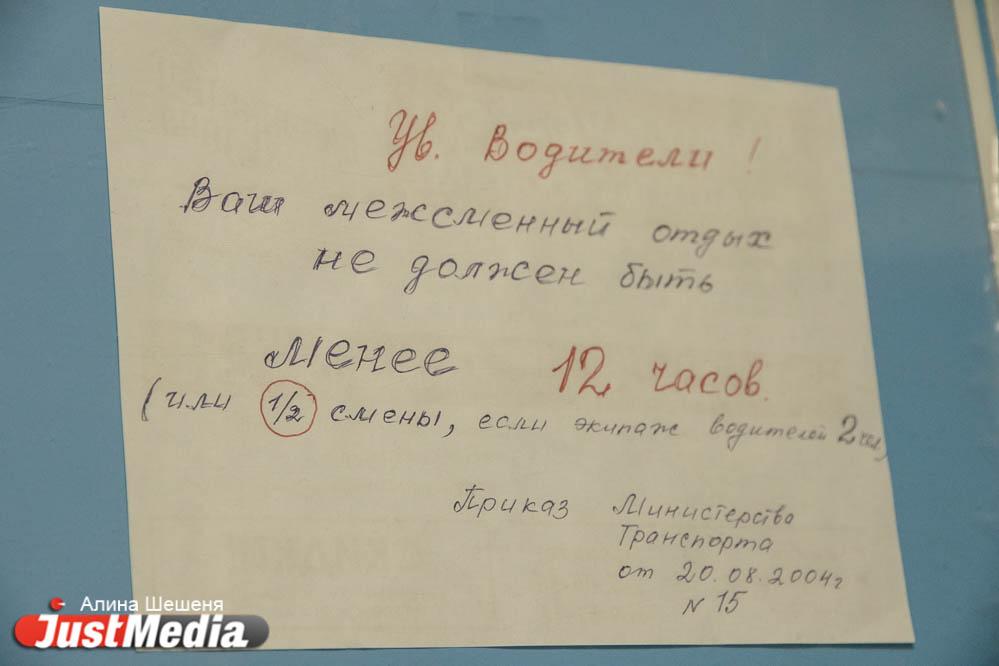 Ув. Водители!
Ваш межсменный отдых
не должен быть
менее 12 часов.
(или 1/2 смены, если экипаж водителей 2 чел)
Приказ Министерства
Транспорта
от 20.08.2004г
N 15
Алина Шешеня
JustMedia